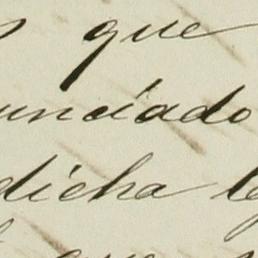 que
unciado
dicha
que